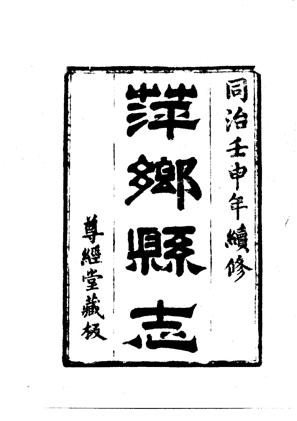 同治壬申年續修
萍鄉縣志
尊經堂藏板